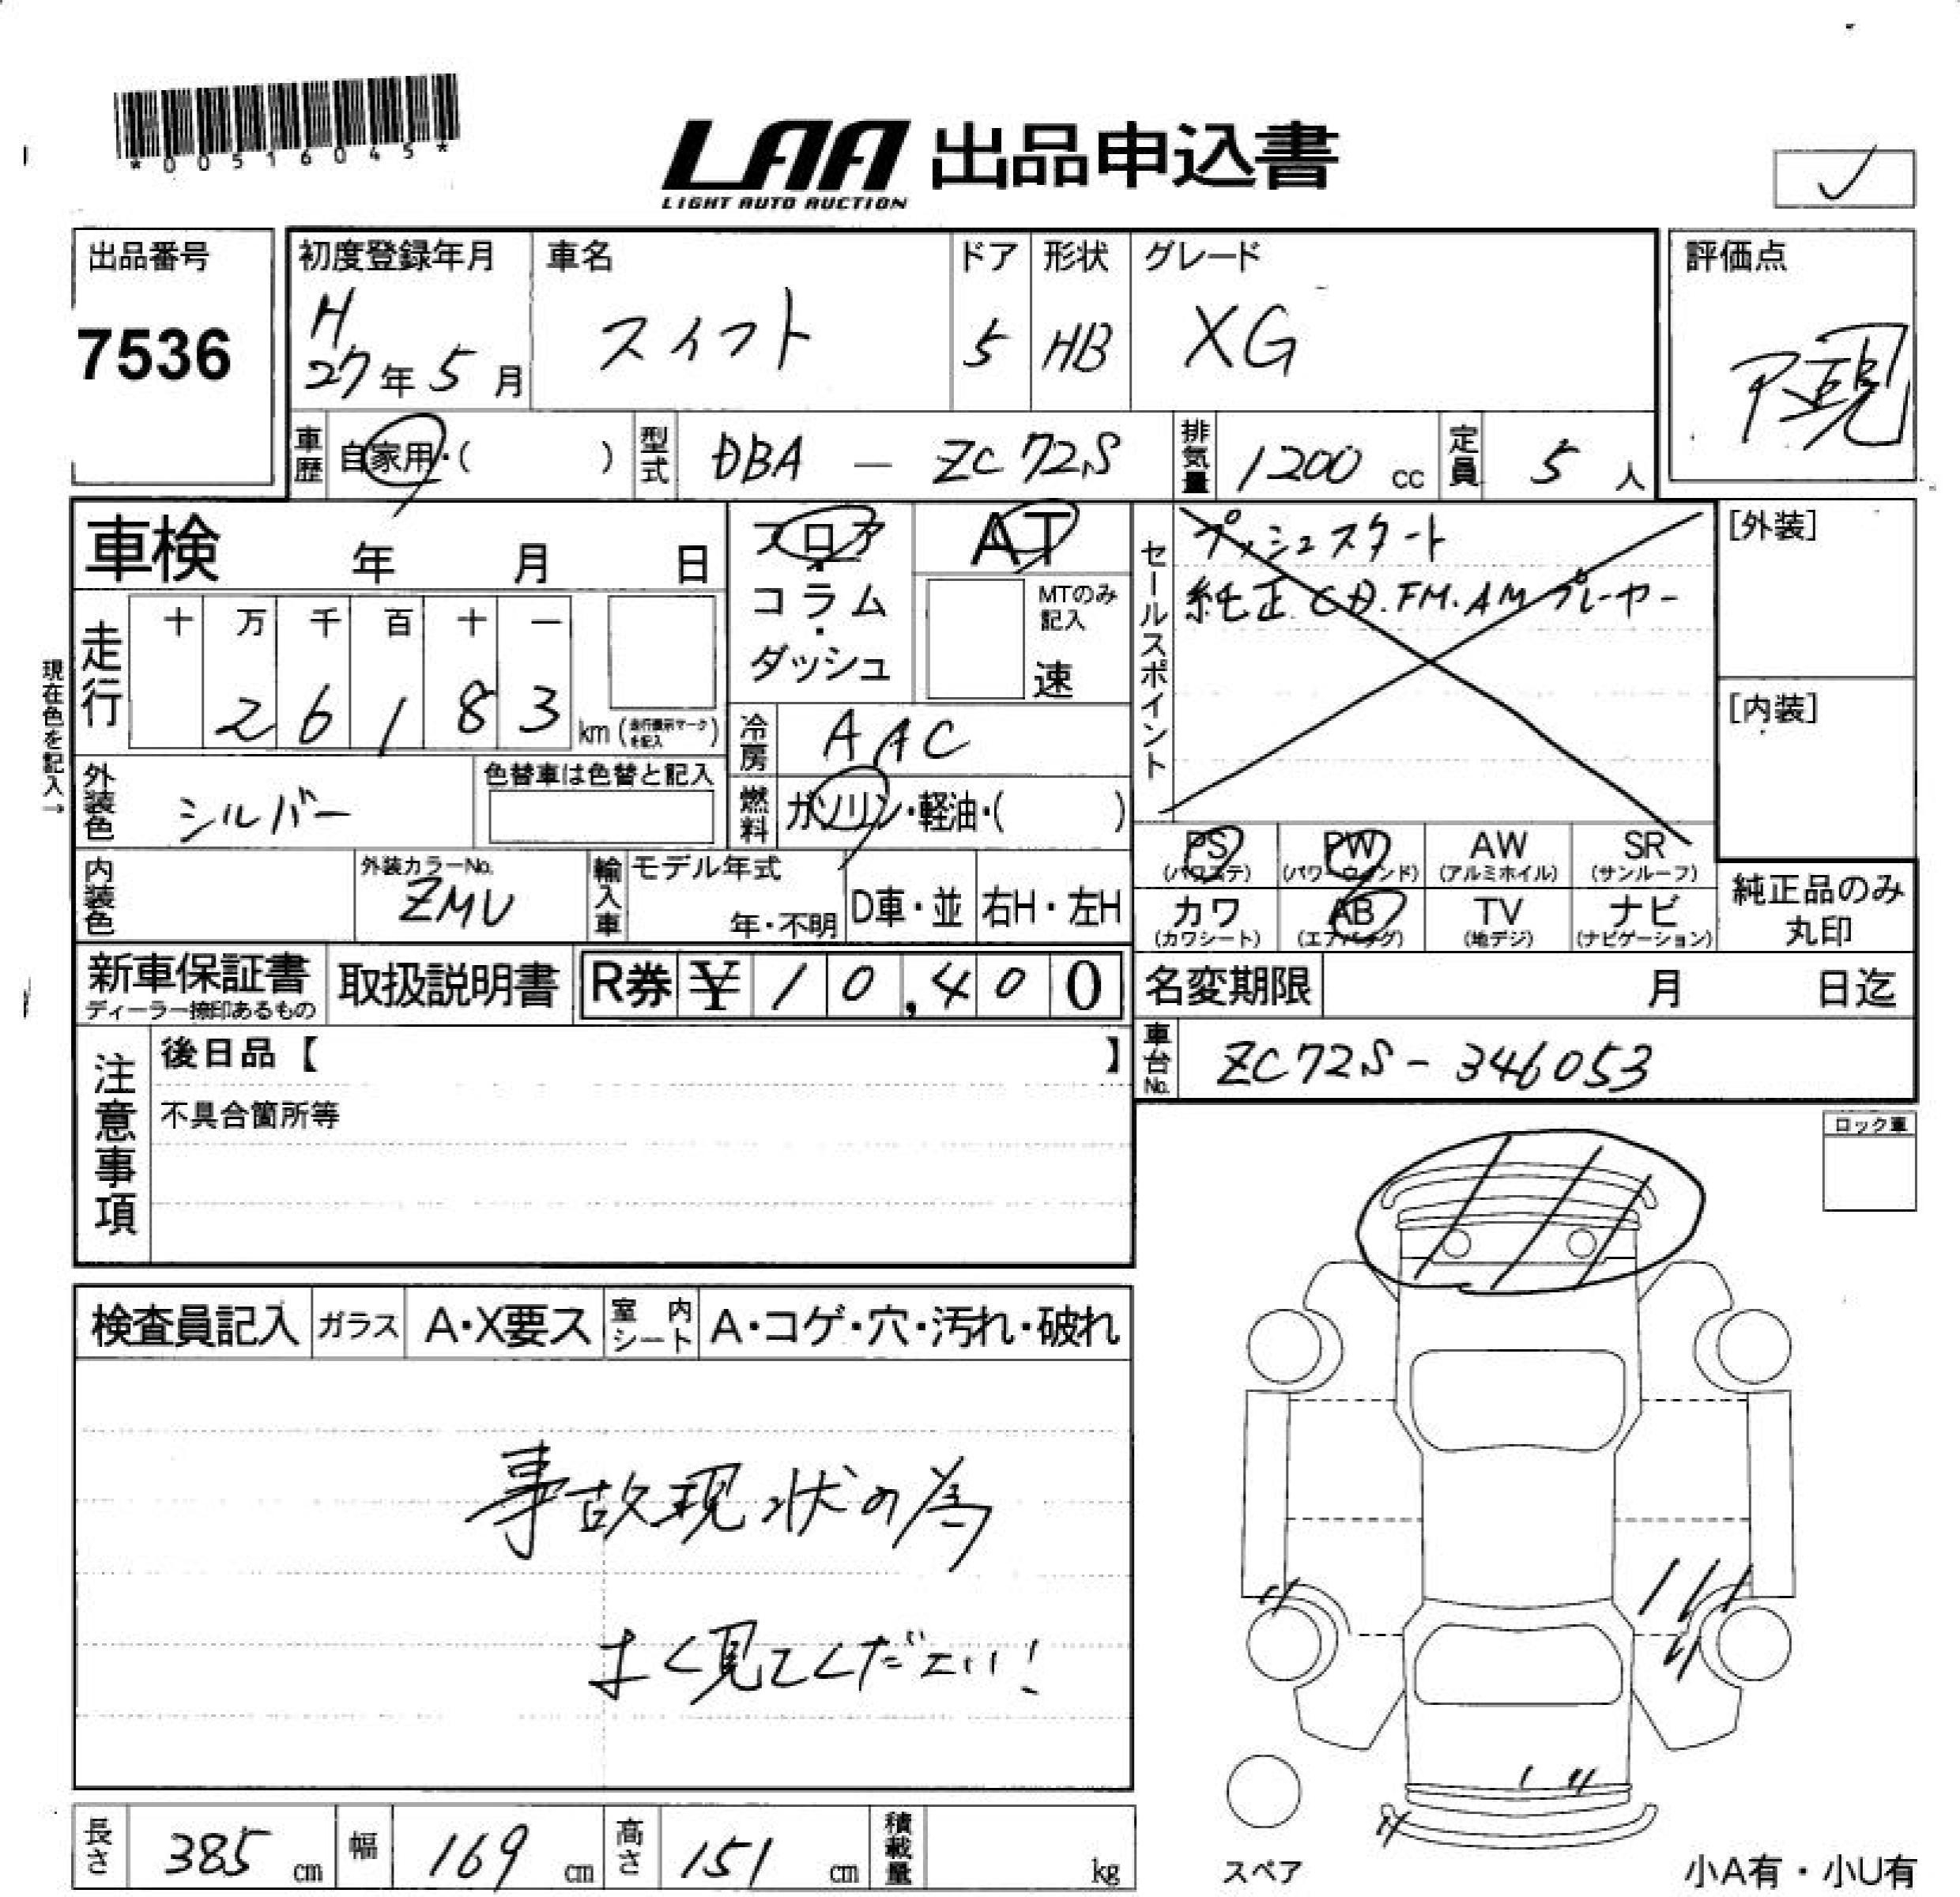 *00516045*
LAA 出品申込書
LIGHT AUTO AUCTION
出品番号
7536
初度登録年月
H
27年5月
車名
スイフト
ドア
5
形状
HB
グレード
XG
評価点
車歴
自家用・( )
型式
DBA — ZC72S
排気量
1200 cc
定員
5 人
車検 年 月 日
フロア・コラム・ダッシュ
AT
MTのみ記入
速
セールスポイント
プッシュスタート
純正 CD.FM.AMプレーヤー
[外装]
[内装]
現在色を記入→
走行
十 万 千 百 十 一
2 6 1 8 3 km(走行表示マークを記入)
冷房
AAC
外装色
シルバー
色替車は色替と記入
燃料
ガソリン・軽油・( )
内装色
外装カラーNo.
ZMU
輸入車
モデル年式
年・不明
D車・並
右H・左H
PS
(パワステ)
PW
(パワーウィンド)
AW
(アルミホイル)
SR
(サンルーフ)
カワ
(カワシート)
AB
(エアバッグ)
TV
(地デジ)
ナビ
(ナビゲーション)
純正品のみ
丸印
新車保証書
ディーラー捺印あるもの
取扱説明書
R券 ¥ 10,400
名変期限 月 日迄
車台No.
ZC72S-346053
注意事項
後日品【 】
不具合箇所等
ロック車
検査員記入
ガラス
A・X要ス
室内シート
A・コゲ・穴・汚れ・破れ
事故現状の為
よく見てください!
長さ
385 cm
幅
169 cm
高さ
151 cm
積載量
kg
スペア
小A有・小U有